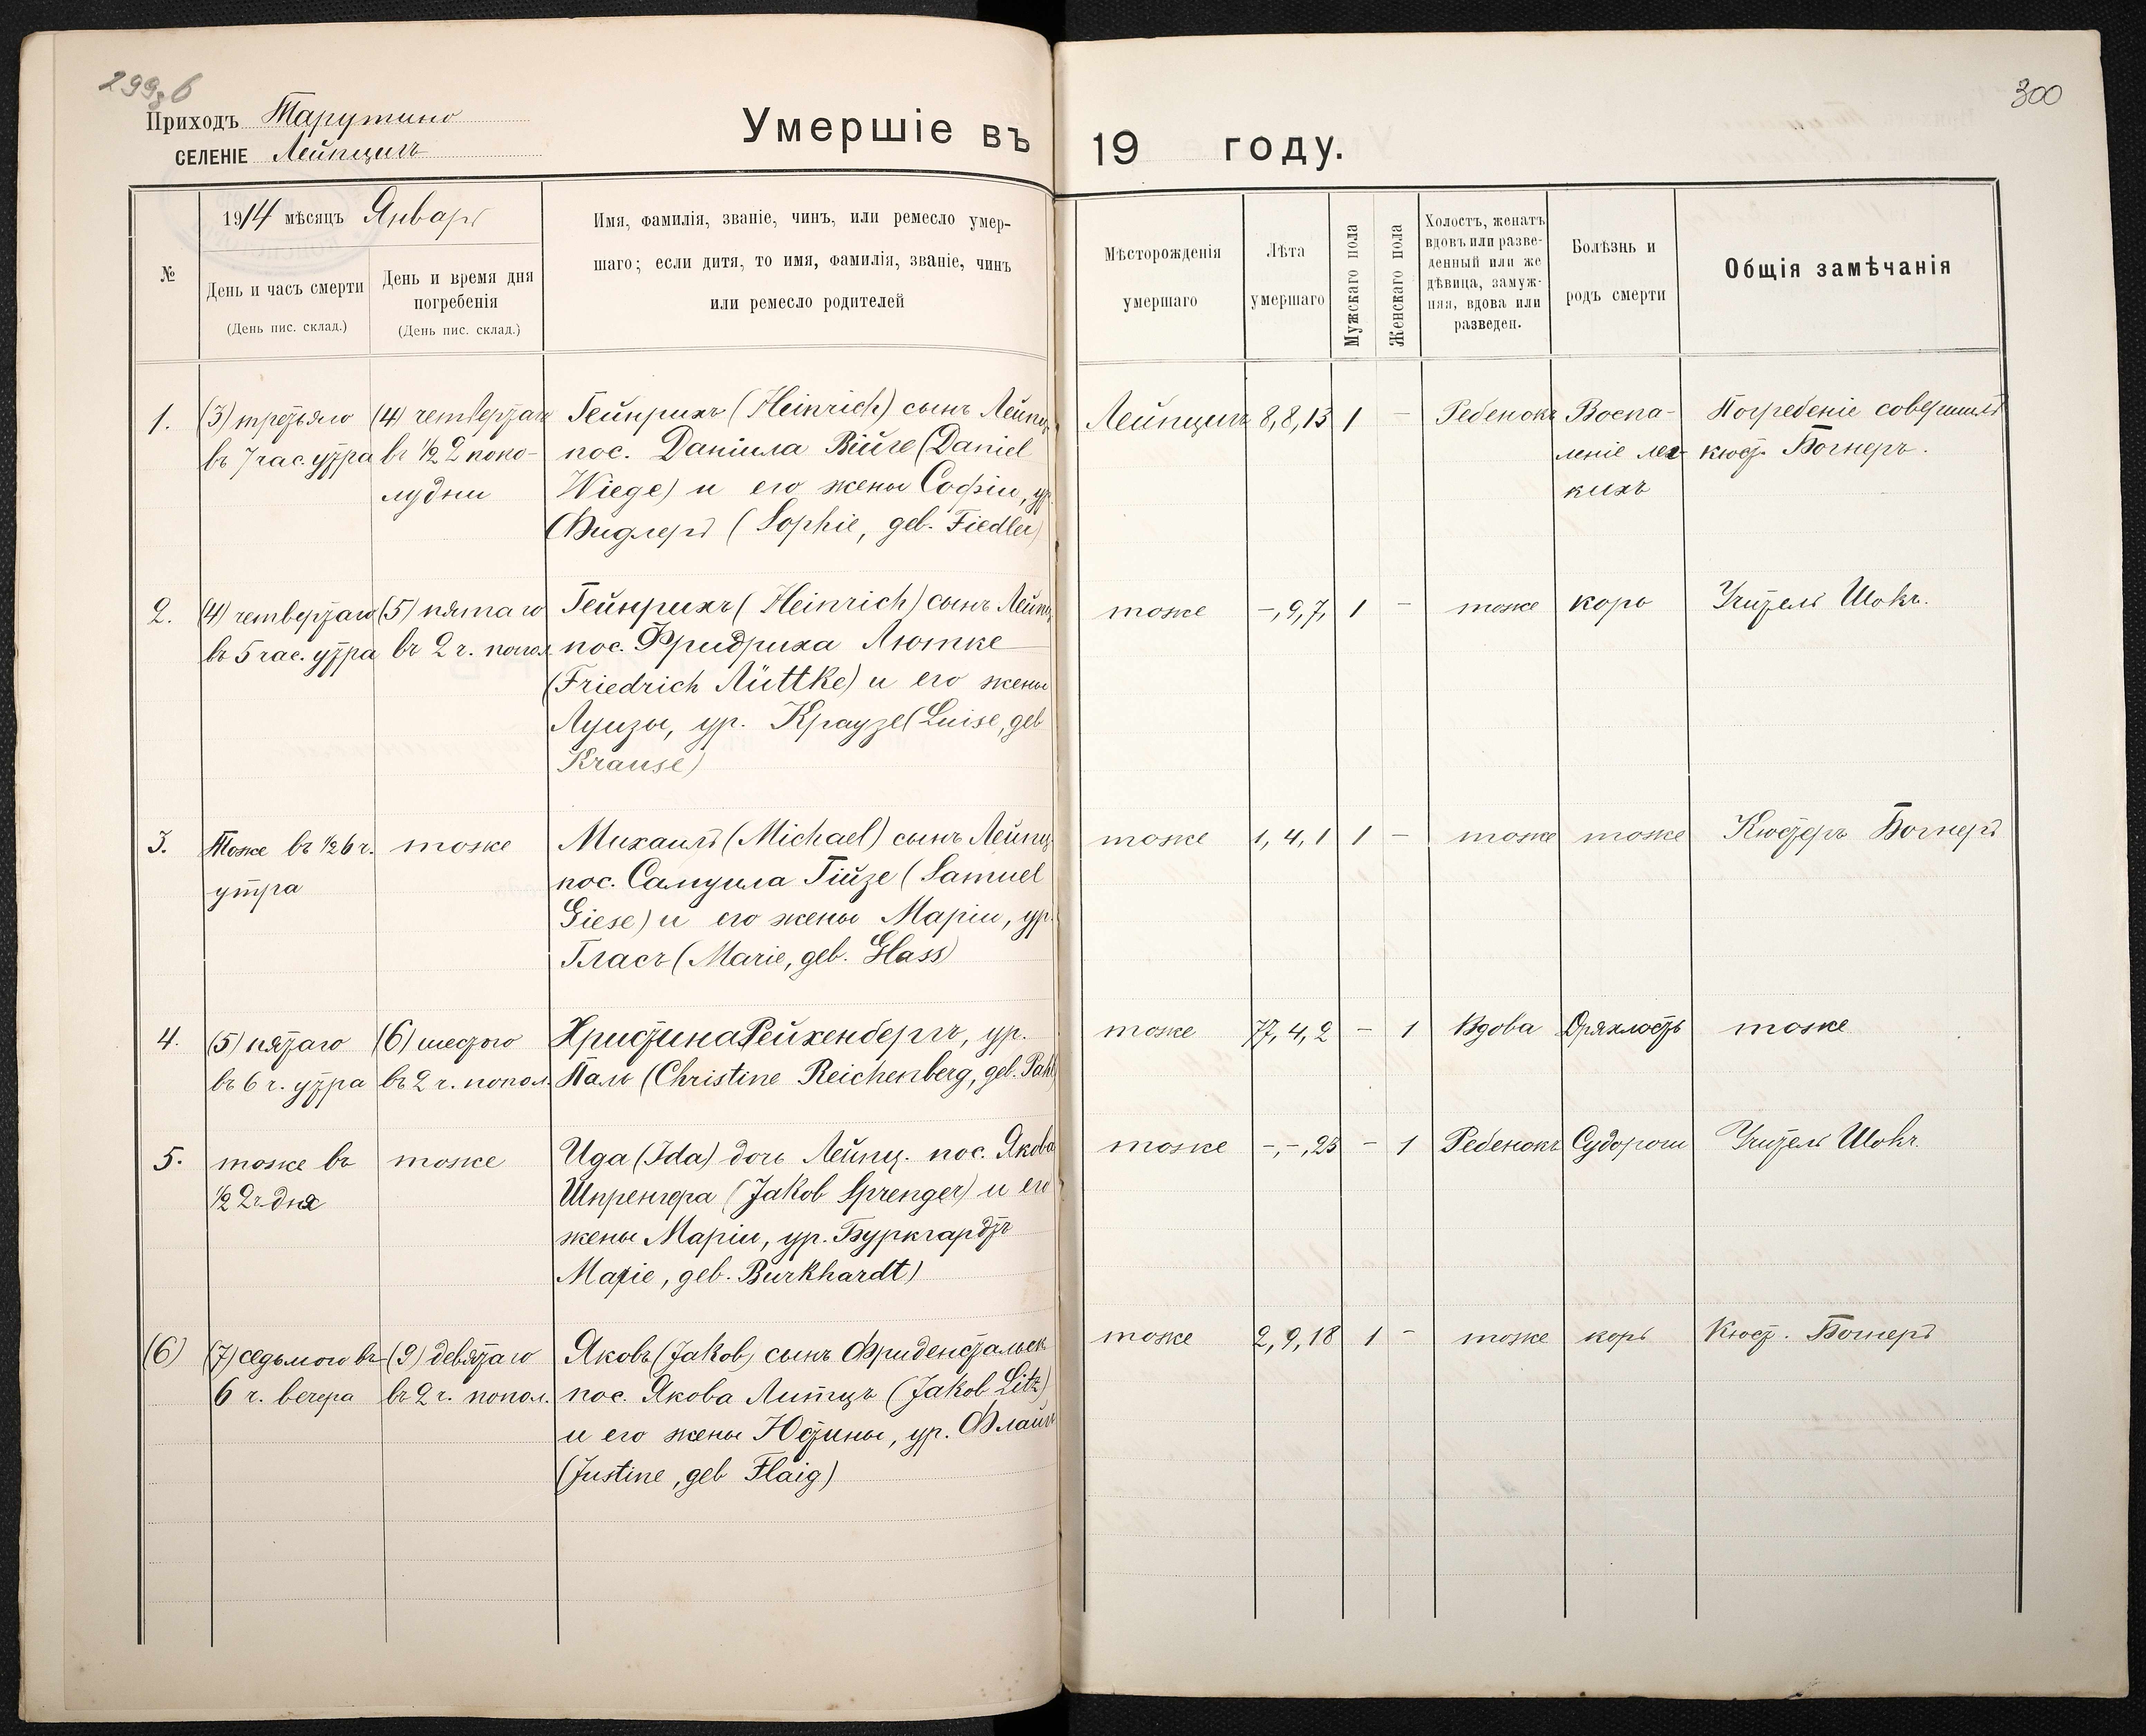 299 б
300
Приходъ Тарутино
СЕЛЕНІЕ Лейпцигъ
Умершіе въ 19 году.
№
1914 мѣсяцъ Январь
День и часъ смерти
(День пис. склад.)
День и время дня
погребенія
(День пис. склад.)
Имя, фамилія, званіе, чинъ, или ремесло умер-
шаго; если дитя, то имя, фамилія, званіе, чинъ
или ремесло родителей
Мѣсторожденія
умершаго
Лѣта
умершаго
Мужскаго пола
Женскаго пола
Холостъ, женатъ
вдовъ или разве-
денный или же
дѣвица, замуж-
няя, вдова или
разведен.
Болѣзнь и
родъ смерти
Общія замѣчанія
1.
(3) третьяго
въ 7 час. утра
(4) четвертаго
въ ½ 2 попо-
лудни
Гейнрихъ (Heinrich) сынъ Лейпц.
пос. Даніила Війге (Daniel
Wiege) и его жены Софіи, ур.
Фидлеръ (Sophie, geb. Fiedler)
Лейпцигъ
8, 8, 13
1
–
Ребенокъ
Воспа-
леніе лег-
кихъ
Погребеніе совершилъ
кюст. Богнеръ.
2.
(4) четвертаго
въ 5 час. утра
(5) пятаго
въ 2 ч. попол.
Гейнрихъ (Heinrich) сынъ Лейпц.
пос. Фридриха Лютке
(Friedrich Lüttke) и его жены
Луизы, ур. Краузе (Luise, geb
Krause)
тоже
–, 9, 7,
1
–
тоже
корь
Учитель Шокъ.
3.
Тоже въ ½ 6 ч.
утра
тоже
Михаилъ (Michael) сынъ Лейпц.
пос. Самуила Гійзе (Samuel
Giese) и его жены Маріи, ур.
Гласъ (Marie, geb. Glass)
тоже
1, 4, 1
1
–
тоже
тоже
Кюстеръ Богнеръ
4.
(5) пятаго
въ 6 ч. утра
(6) шестого
въ 2 ч. попол.
Христина Рейхенбергъ, ур.
Паль (Christine Reichenberg, geb. Pahl)
тоже
77, 4, 2
–
1
Вдова
Дряхлость
тоже
5.
тоже въ
½ 2 ч. дня
тоже
Ида (Ida) дочь Лейпц. пос. Якова
Шпренгера (Jakob Sprenger) и его
жены Маріи, ур. Буркгардтъ
Marie, geb. Burkhardt)
тоже
–, –, 23
–
1
Ребенокъ
Судороги
Учитель Шокъ.
(6)
(7) седьмого въ
6 ч. вечера
(9) девятаго
въ 2 ч. попол.
Яковъ (Jakob) сынъ Фриденстальск
пос. Якова Литцъ (Jakob Litz)
и его жены Юстины, ур. Флайгъ
(Justine, geb Flaig)
тоже
2, 9, 18
1
–
тоже
корь
Кюст. Богнеръ